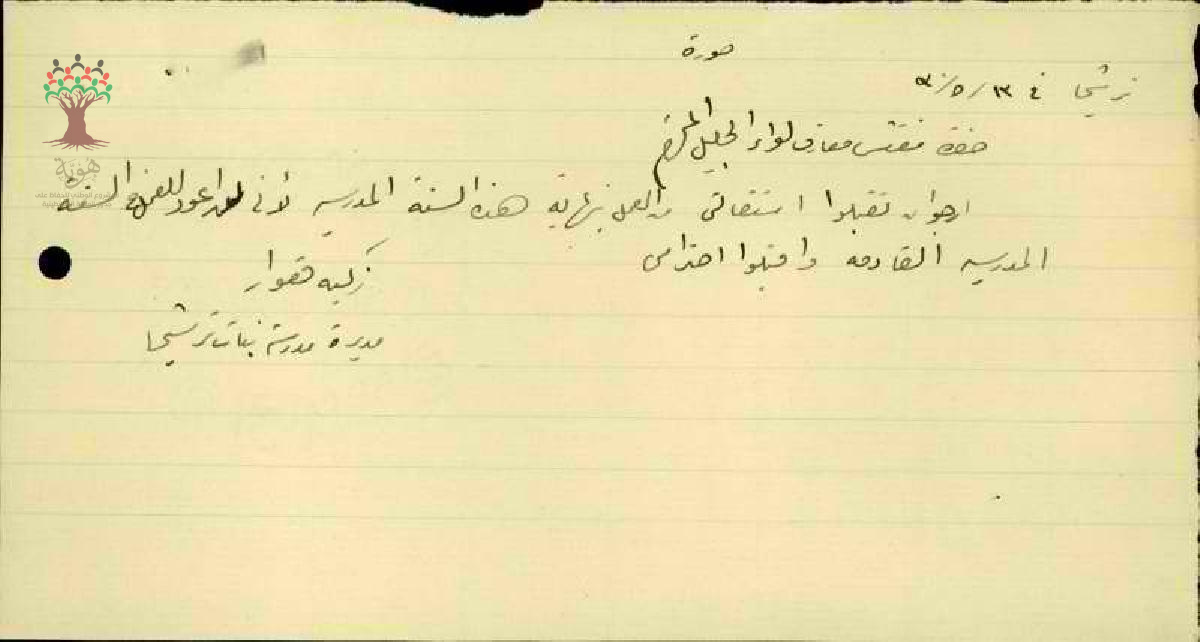 صورة
ترشيحا في ١٣/٥/٣٠
حضرة مفتش معارف لواء الجليل المحترم
ارجو ان تقبلوا استقالتي من العمل بنهاية هذه السنة المدرسيه لأني لن اعود للعمل في السنة
المدرسيه القادمه واقبلوا احترامي
زكيه قعوار
مديرة مدرسة بنات ترشيحا
هوية